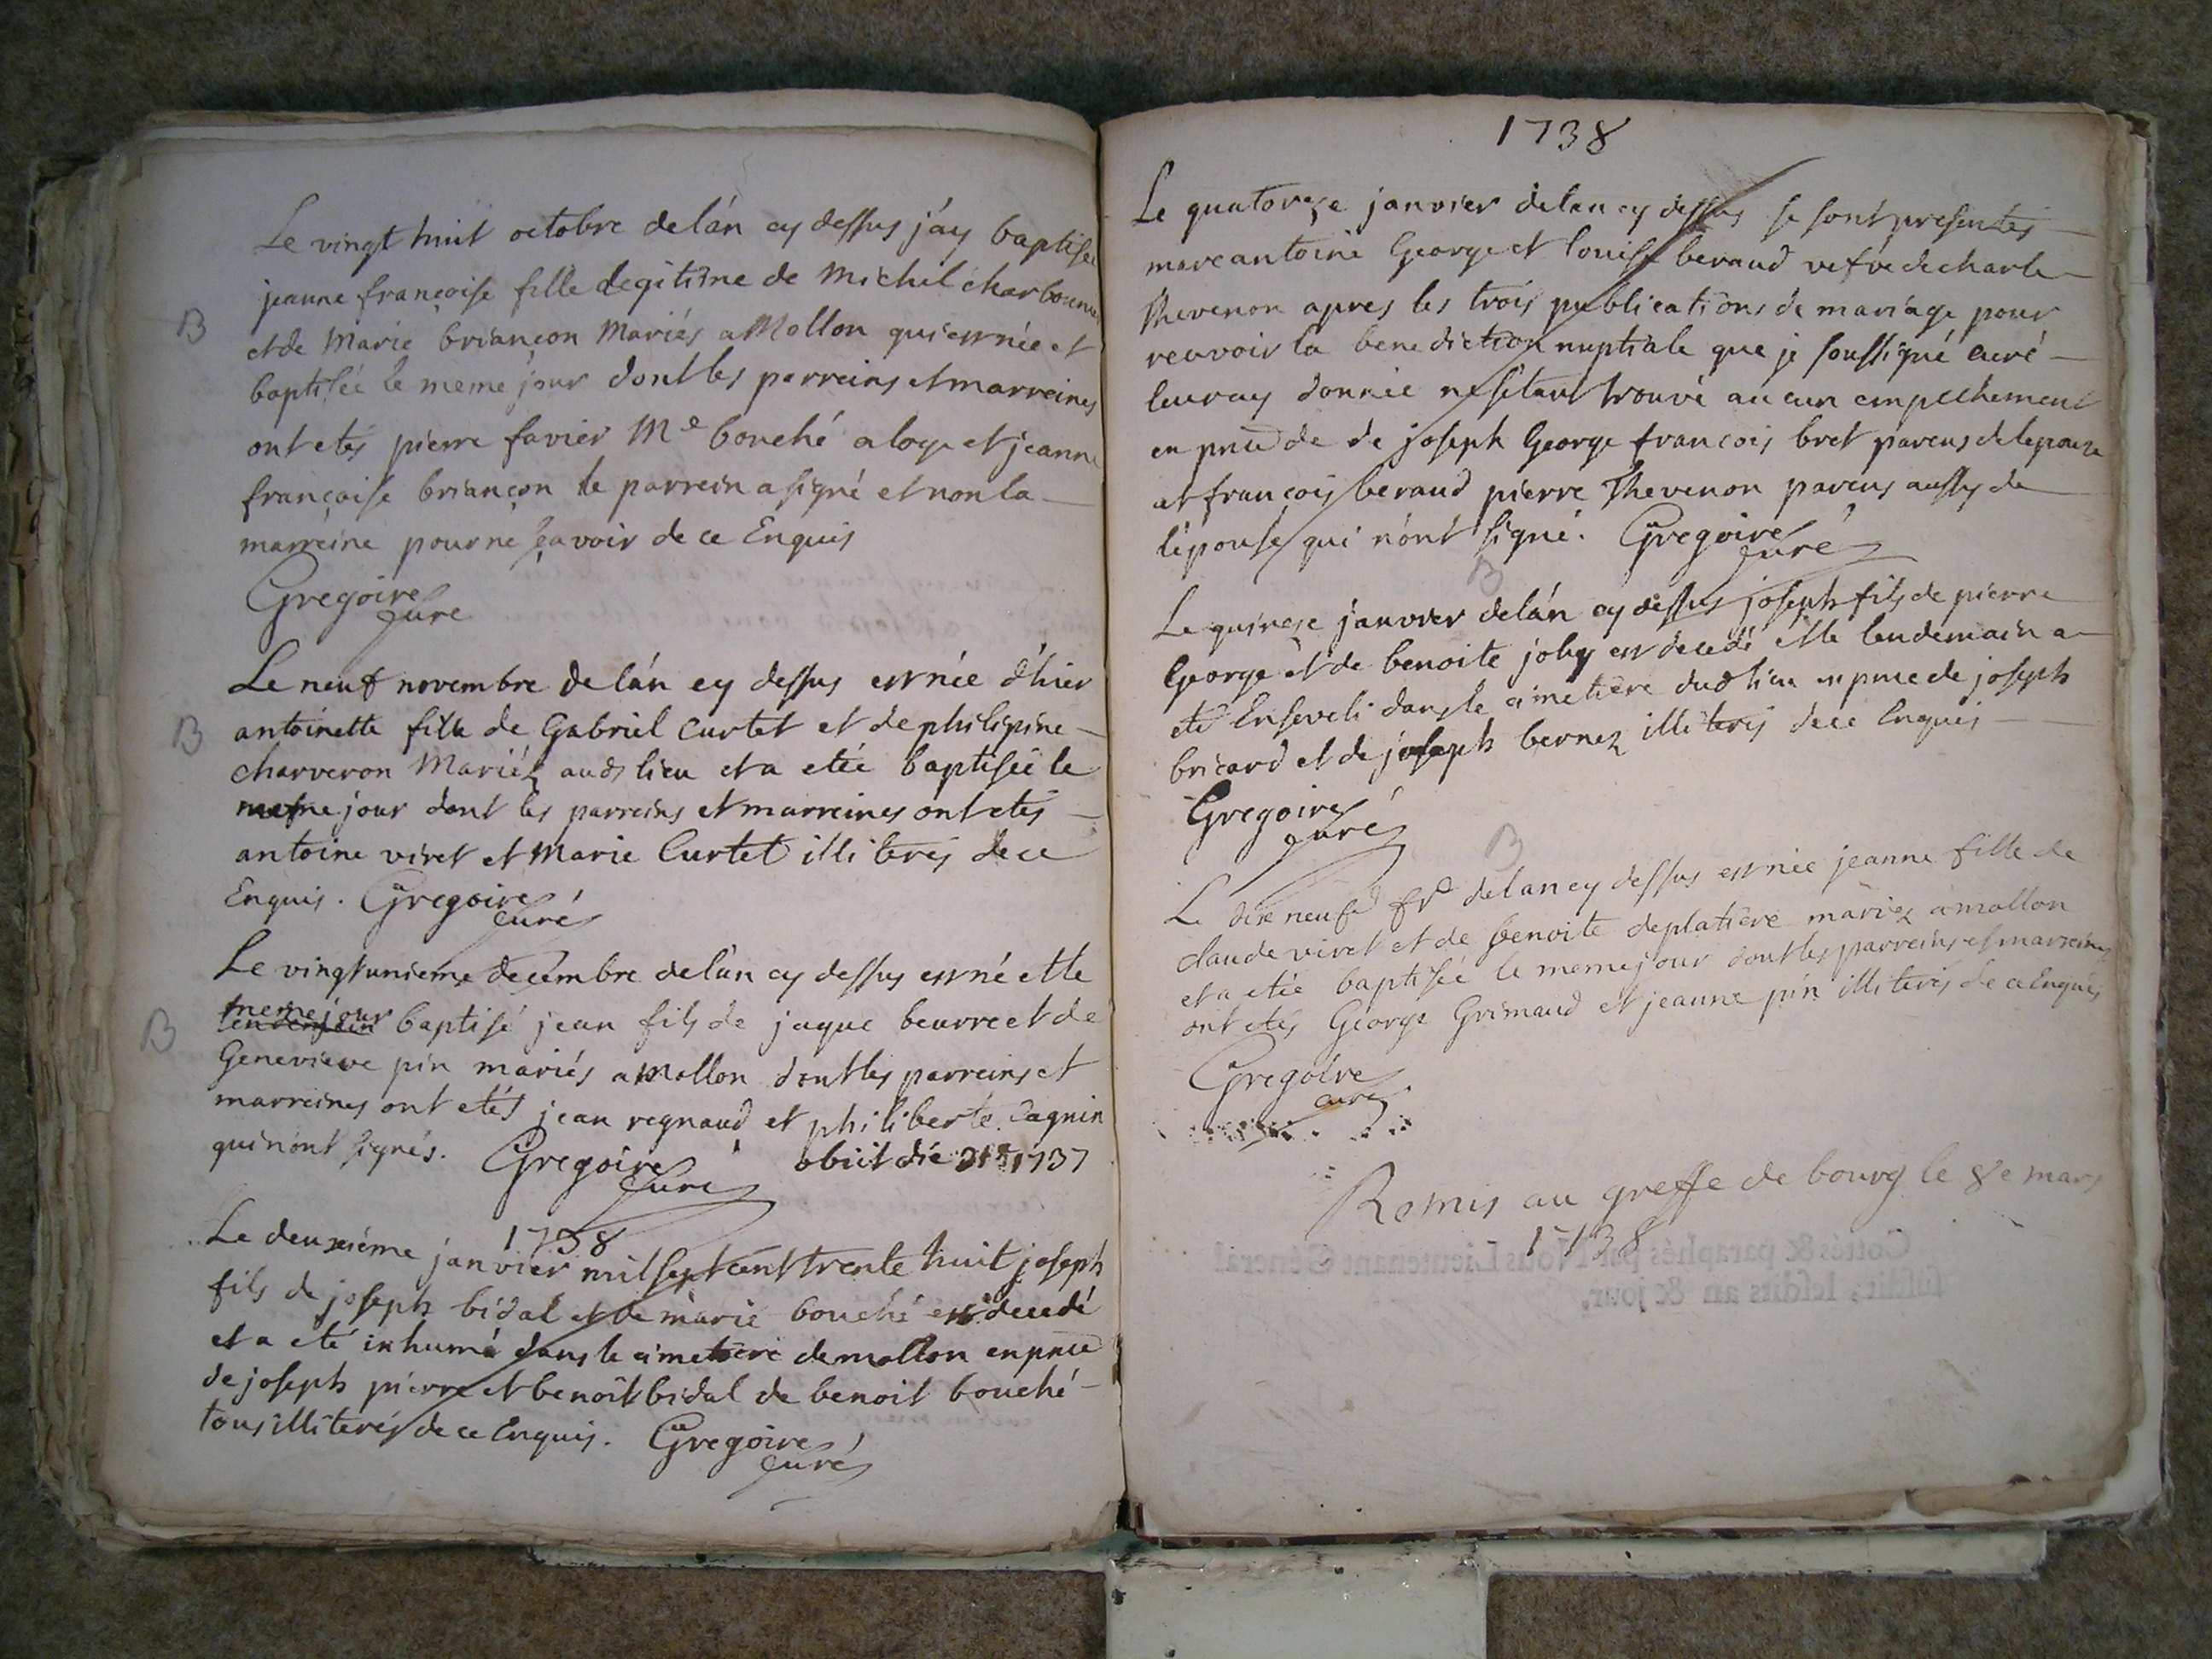 Le vingt huit octobre de lán cy dessus j'ay baptisée
jeanne françoise fille legitime de Michel charbonnet
B
et de Marie briançon Mariés a Mollon qui est née et
baptisée le meme jour dont les parreins et marreines
ont etés pierre favier Me bouché a loye et jeanne
françoise briançon le parrein a signé et non la
marreine pour ne sçavoir de ce Enquis
Gregoire
curé
Le neuf novembre de lán cy dessus est née d'hier
B
antoinette fille de Gabriel Curtet et de philipine
charveron Mariéz aud lieu et a etée baptisée le
meme jour dont les parreins et marreines ont etés
antoine viret et Marie Curtet illiterés de ce
Enquis. Gregoire
curé
Le vingt unieme decembre de lán cy dessus est né et le
meme jour
B
lendemain baptisé jean fils de jaque beurre et de
Genevieve pin mariés a Mollon dont les parreins et
marreines ont etés jean regnaud et philiberte Cagnin
qui nont signés. Gregoire
curé
obiit die 1737
1738
Le deuxieme janvier mil sept cent trente huit joseph
fils de joseph bidal et de marie bouché est decedé
et a eté inhumé dans le cimetiere de mollon en pnce
de joseph pierre et benoit bidal de benoit bouché
tous illiterés de ce Enquis. Gregoire
curé
1738
Le quatorze janvier de lan cy dessus se sont presentés
marc antoine George et louise beraud vefve de charle
Thevenon apres les trois publications de mariage pour
recevoir la benediction nuptiale que je soussigné curé
leur ay donnée ne sétant trouvé aucun empechement
en pnce de de joseph George francois bret parens de lepoux
et francois beraud pierre Thevenon parens aussy de
lépouse qui nónt signé. Gregoire
curé
B
Le quinze janvier de lán cy dessus joseph fils de pierre
George et de benoite joly est decedé et le lendemain a
eté Enseveli dans le cimetiere dud lieu en pnce de joseph
bricard et de joseph bernez illiterés de ce Enquis
Gregoire
curé
B
Le dix neufe fr de lan cy dessus est née jeanne fille de
claude viret et de benoite deplatiere mariez a mollon
et a etée baptisée le meme jour dont les parreins et marreines
ont etés George Grimaud et jeanne pin illiterés de ce Enquis
Gregoire
curé
Remis au greffe de bourg le 8e mars
1738
Cottés & paraphés par Nous Lieutenant Général
susdit, lesdits an & jour,